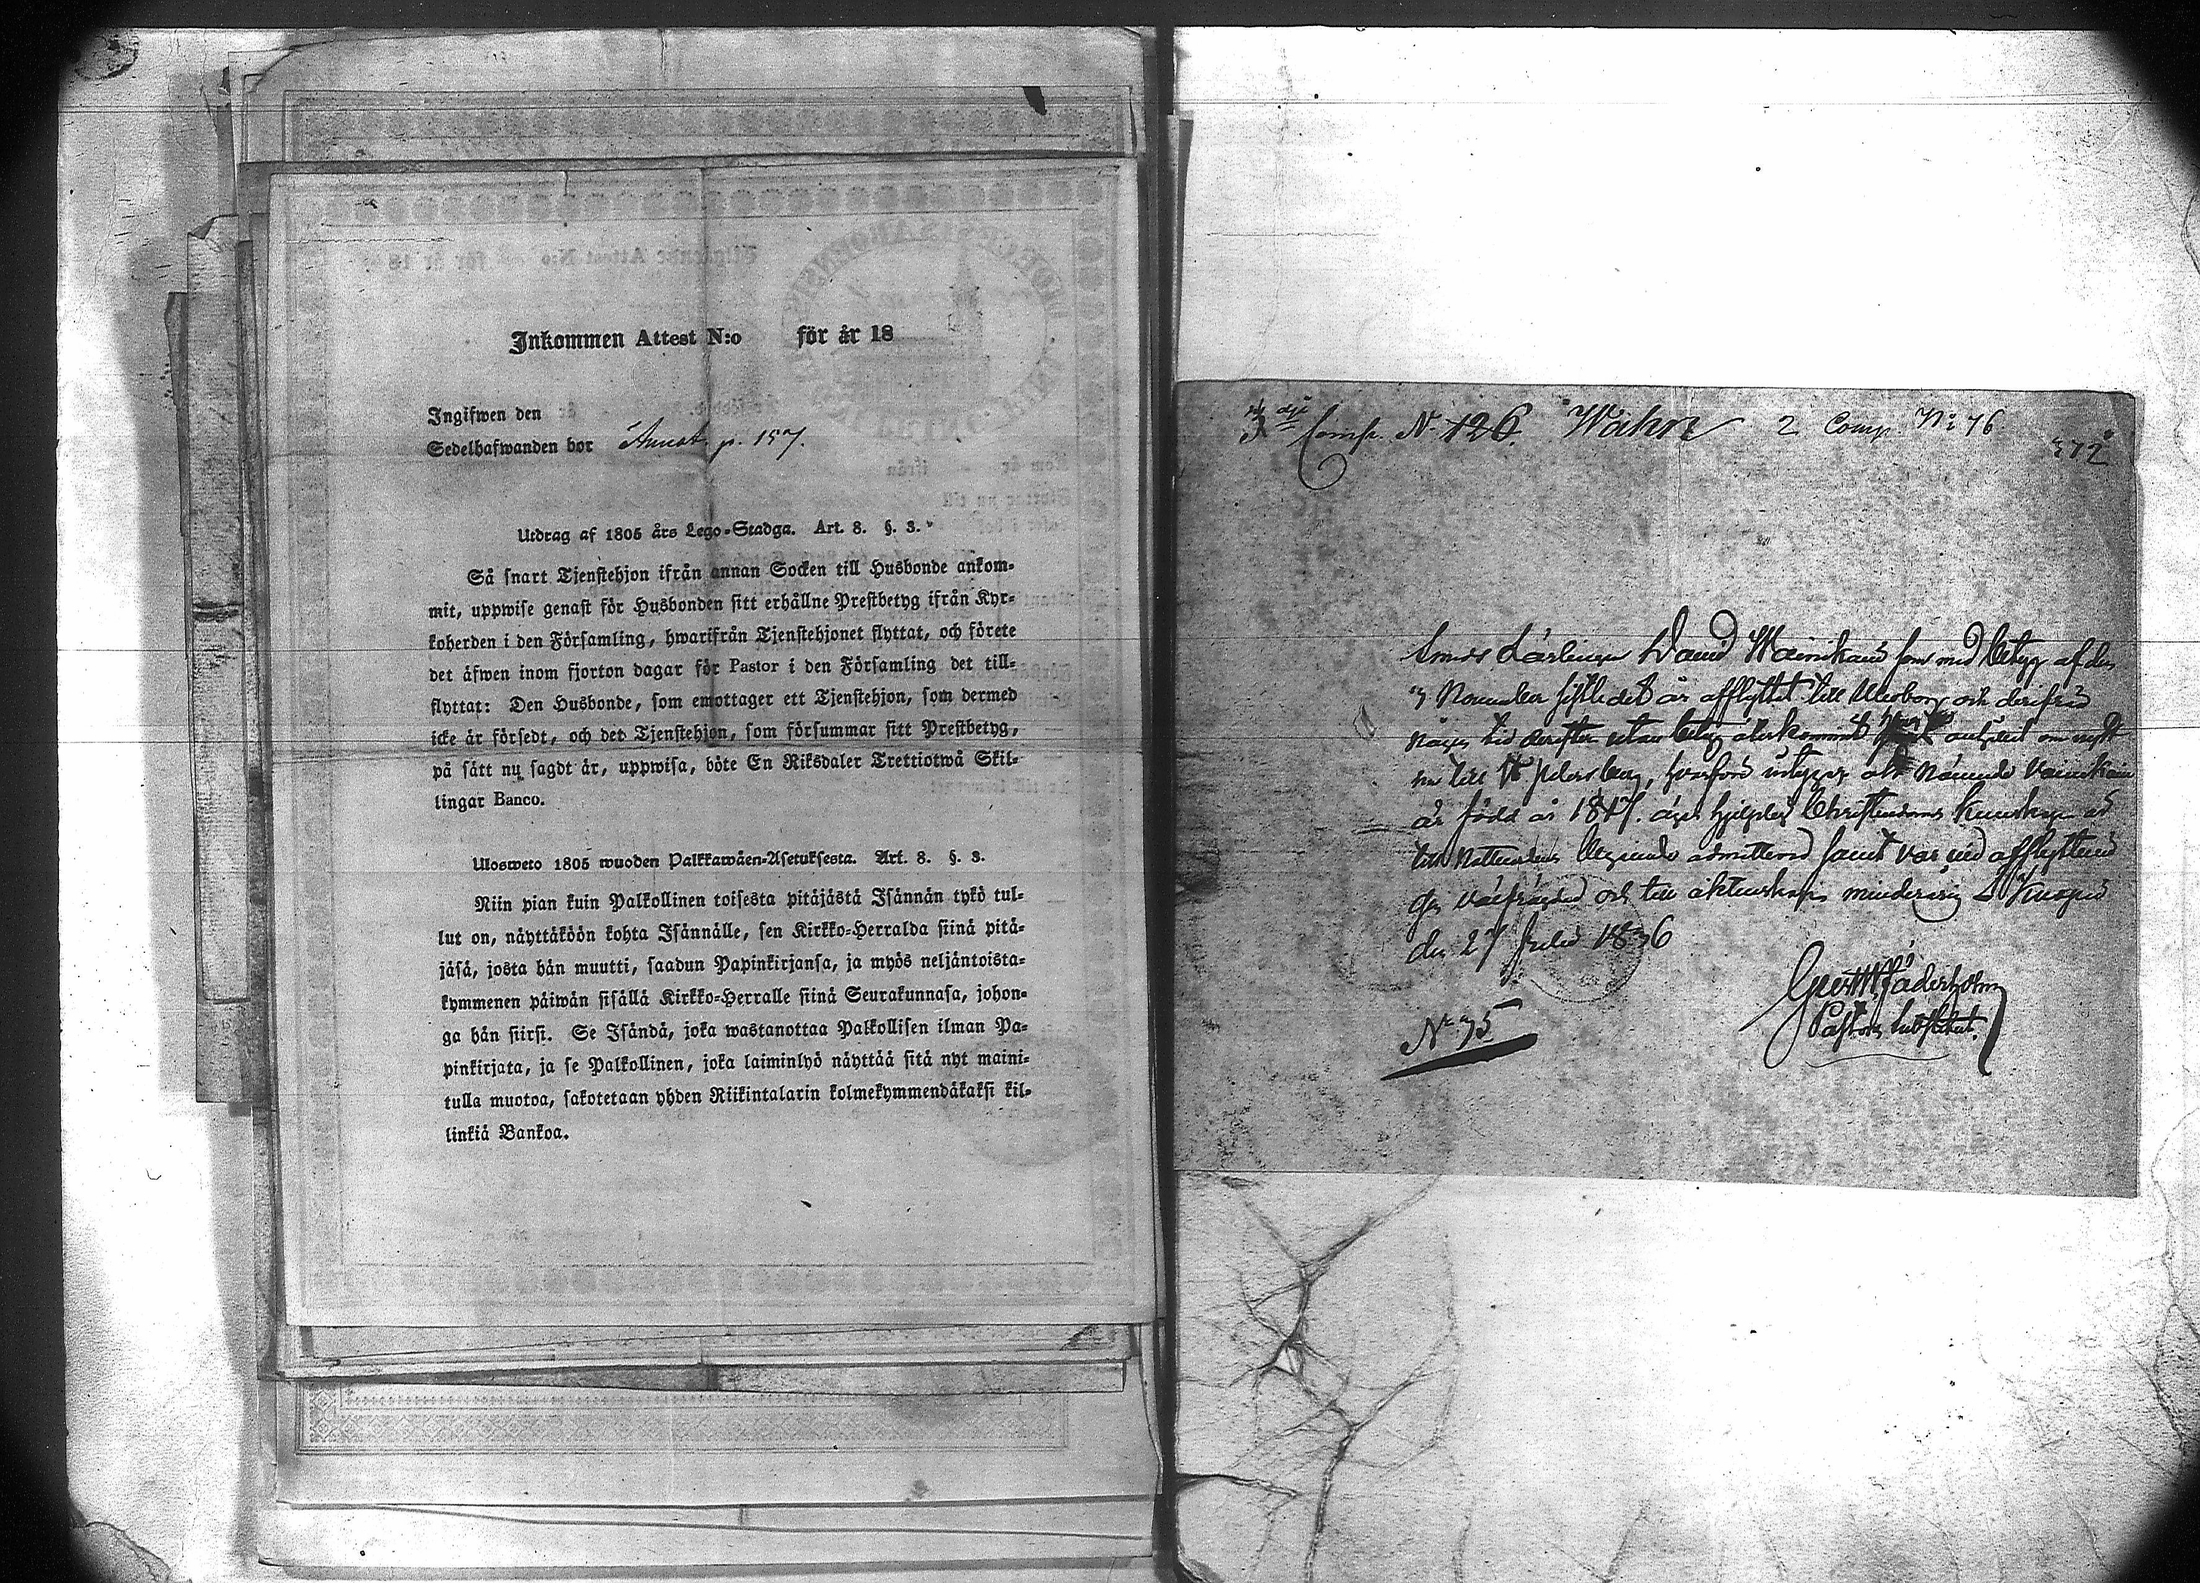 Inkommen Attest N:o för år 18
Ingifwen den
Sedelhafwanden bor Annat. p. 157.
Utdrag af 1805 års Lego-Stadga. Art. 8. §. 3.
Så snart Tjenstehjon ifrån annan Socken till Husbonde ankom-
mit, uppwise genast för Husbonden sitt erhållne Prestbetyg ifrån Kyr-
koherden i den Församling, hwarifrån Tjenstehjonet flyttat, och förete
det äfwen inom fjorton dagar för Pastor i den Församling det till-
flyttat: Den Husbonde, som emottager ett Tjenstehjon, som dermed
icke är försedt, och det Tjenstehjon, som försummar sitt Prestbetyg,
på sätt nu sagdt är, uppwisa, böte En Riksdaler Trettiotwå Skil-
lingar Banco.
Ulosweto 1805 wuoden Palkkawäen-Asetuksesta. Art. 8. §. 3.
Niin pian kuin Palkollinen toisesta pitäjästä Isännän tykö tul-
lut on, näyttäköön kohta Isännälle, sen Kirkko-Herralda siinä pitä-
jäsä, josta hän muutti, saadun Papinkirjansa, ja myös neljäntoista-
kymmenen päiwän sisällä Kirkko-Herralle siinä Seurakunnasa, johon-
ga hän siirsi. Se Isändä, joka wastanottaa Palkollisen ilman Pa-
pinkirjata, ja se Palkollinen, joka laiminlyö näyttää sitä nyt maini-
tulla muotoa, sakotetaan yhden Riikintalarin kolmekymmendäkaksi kil-
linkiä Bankoa.
3dje Comp. N 126. 2 Comp. No 76
372
Lärlingen David Wainikain som med betyg af den
November sistledet år afflyttat till Uleåborg och derifrån
någon tid derefter utan betyg återkommit
till St petersburg, hvarföre intygas att Näminde Vainikain
är född år 1817. äger hjelplig Christendoms kunskap är
till Nattvardens admitterad samt var vid afflyttning
välfrägdad och till äktenskap Kuopio
den 27 Julii 1836
No 75
Gust W Jäderholm
Pastors Substitut.